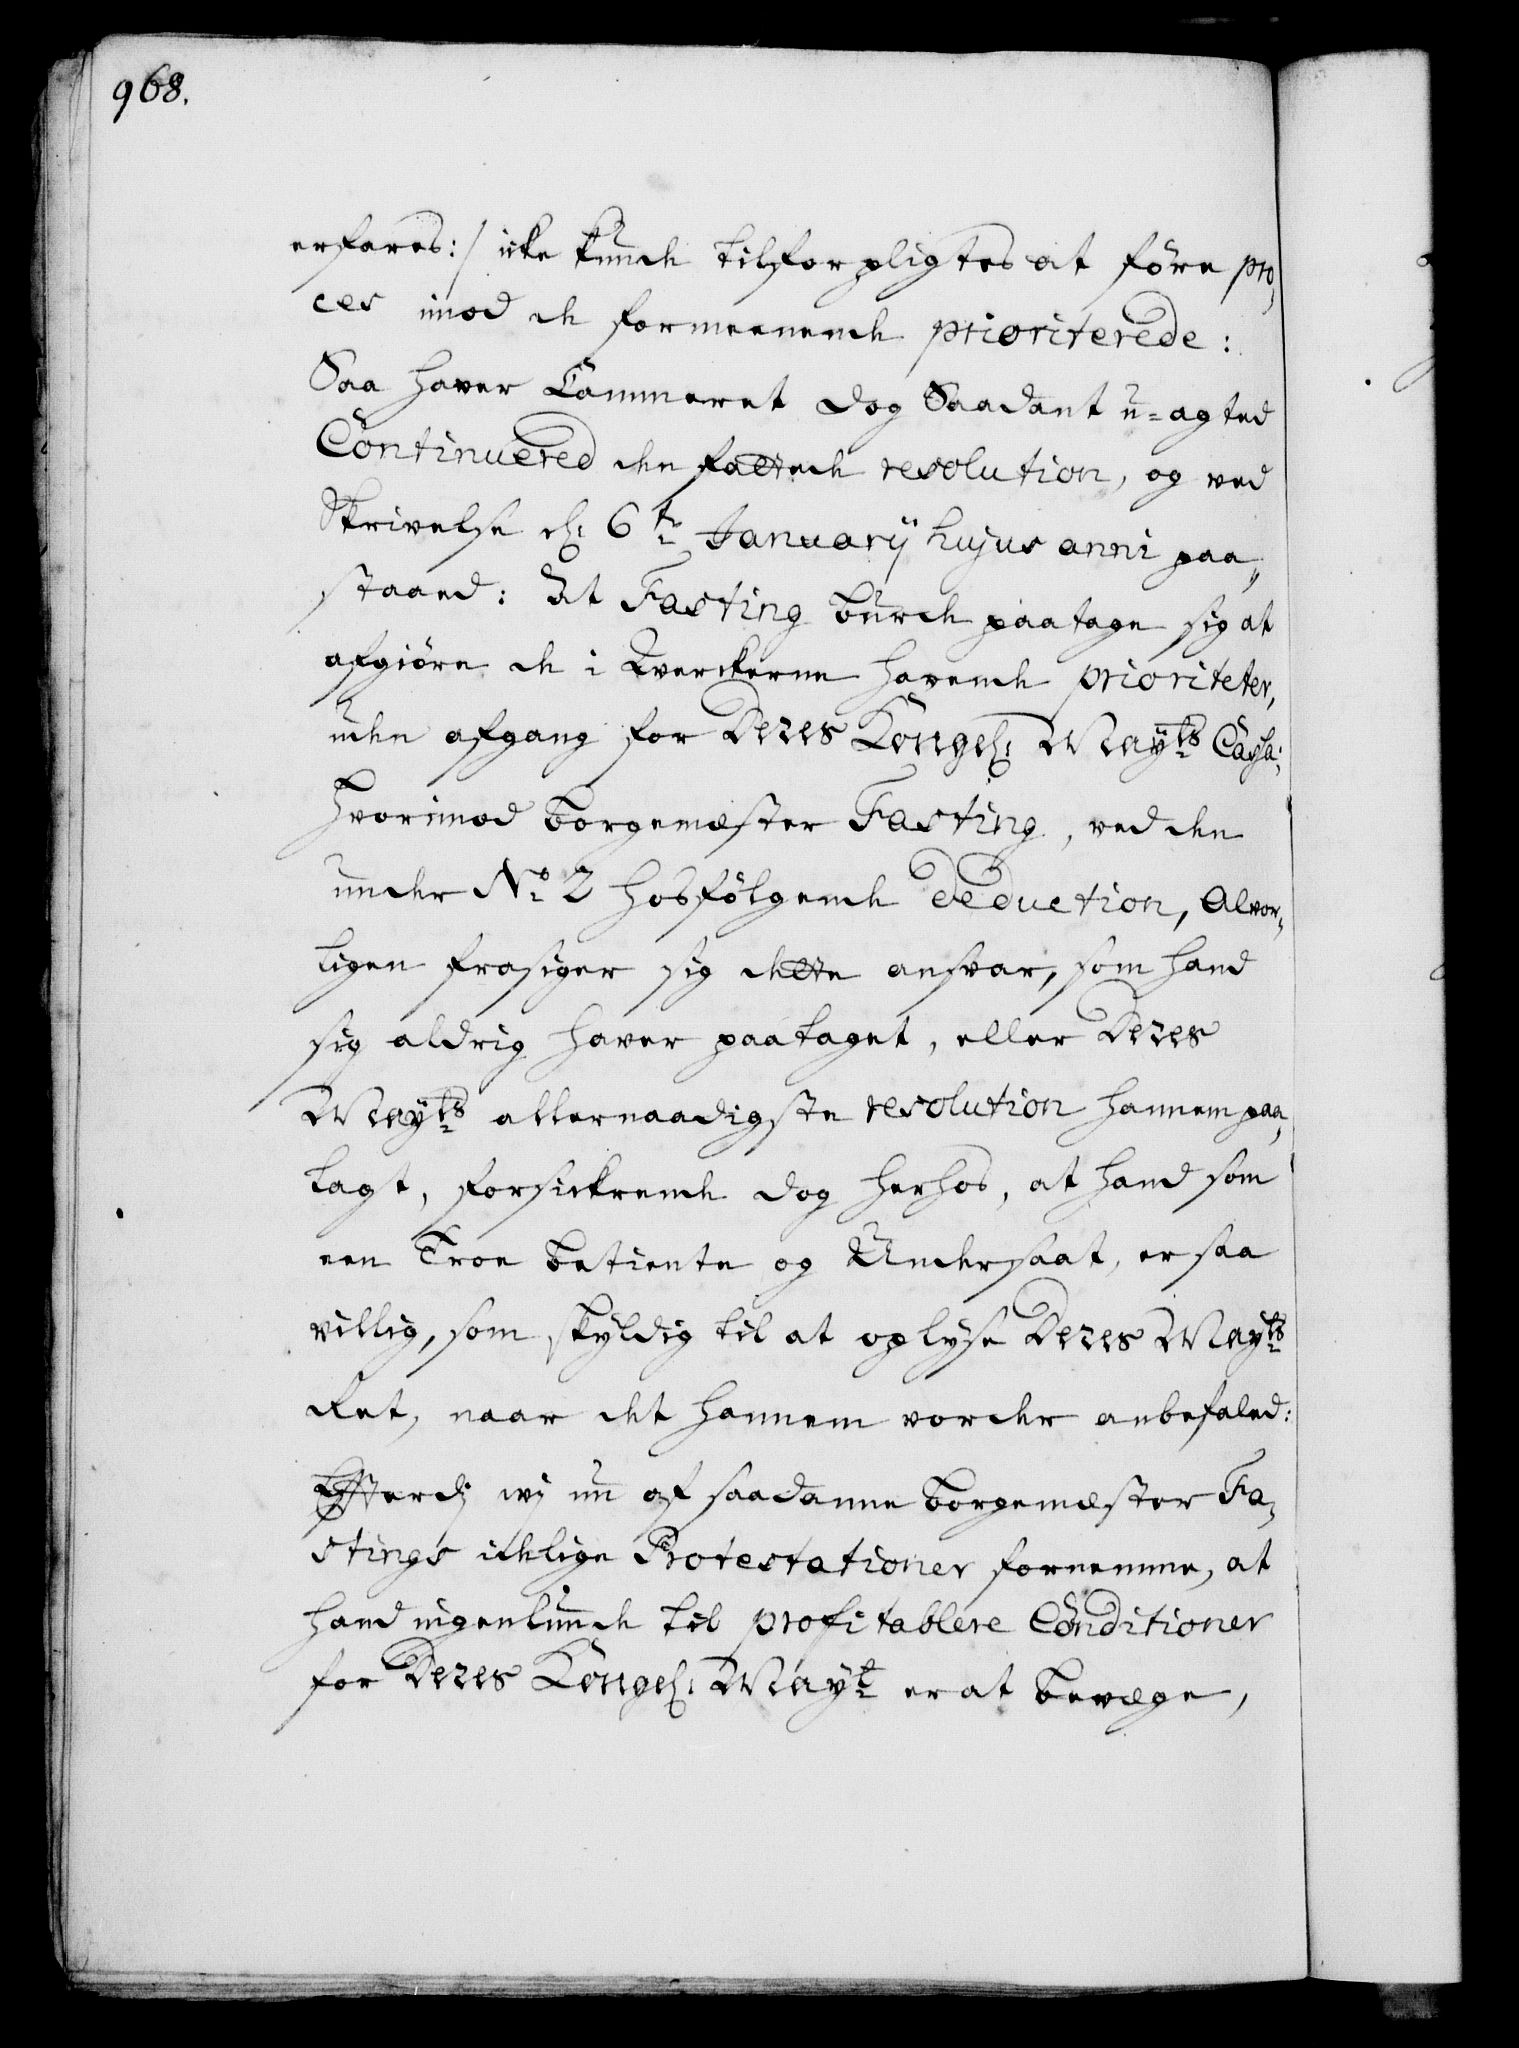 968.
erfares:/ icke kunde tilforpligtes at före pro-
ces imod de formeenende prioriterede:
Saa haver Cammeret dog Saadant u-agted
Continuered den fattede resolution, og ved
Skrivelse d: 6te Januarÿ hujus anni paa-
staaed: At Fasting burde paatage sig at
afgiöre de i Qverckerne havende prioriteter,
uden afgang for Deres Kongel: Mayts Cassa:
hvorimod borgemester Fasting, ved den
under No 2 hosfölgende deduction, Alvor-
ligen frasiger sig dette ansvar, som hand
sig aldrig haver paataget, eller Deres
Mayts allernaadigste resolution hannem paa-
lagt, forsickrende dog herhos, at hand som
een Troe betiente og Undersaat, er saa
villig, som skyldig til at oplyse Deres Mayts
Ret, naar det hannem vorder anbefaled:
Efterdj wj nu af saadanne borgemester Fa-
stings idelige Protestationer fornemme, at
hand ingenlunde til profitablere Conditioner
for Deres Kongel: Mayt er at bevæge,